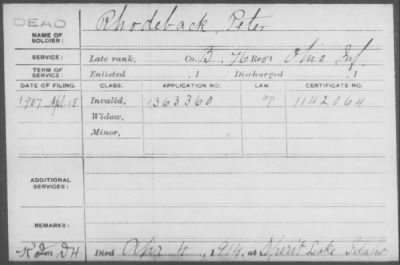 DEAD
NAME OF SOLDIER: Rhodeback, Peter
SERVICE: Late rank, Co. B, 76 Reg't Ohio Inf.
TERM OF SERVICE: Enlisted , 1 Discharged , 1
DATE OF FILING. CLASS. APPLICATION NO. LAW CERTIFICATE NO.
1907 Apl. 18 Invalid, 1363360 1142064
Widow,
Minor,
ADDITIONAL SERVICES:
REMARKS:
Died Apr 4, 1914, at Spirit Lake Idaho